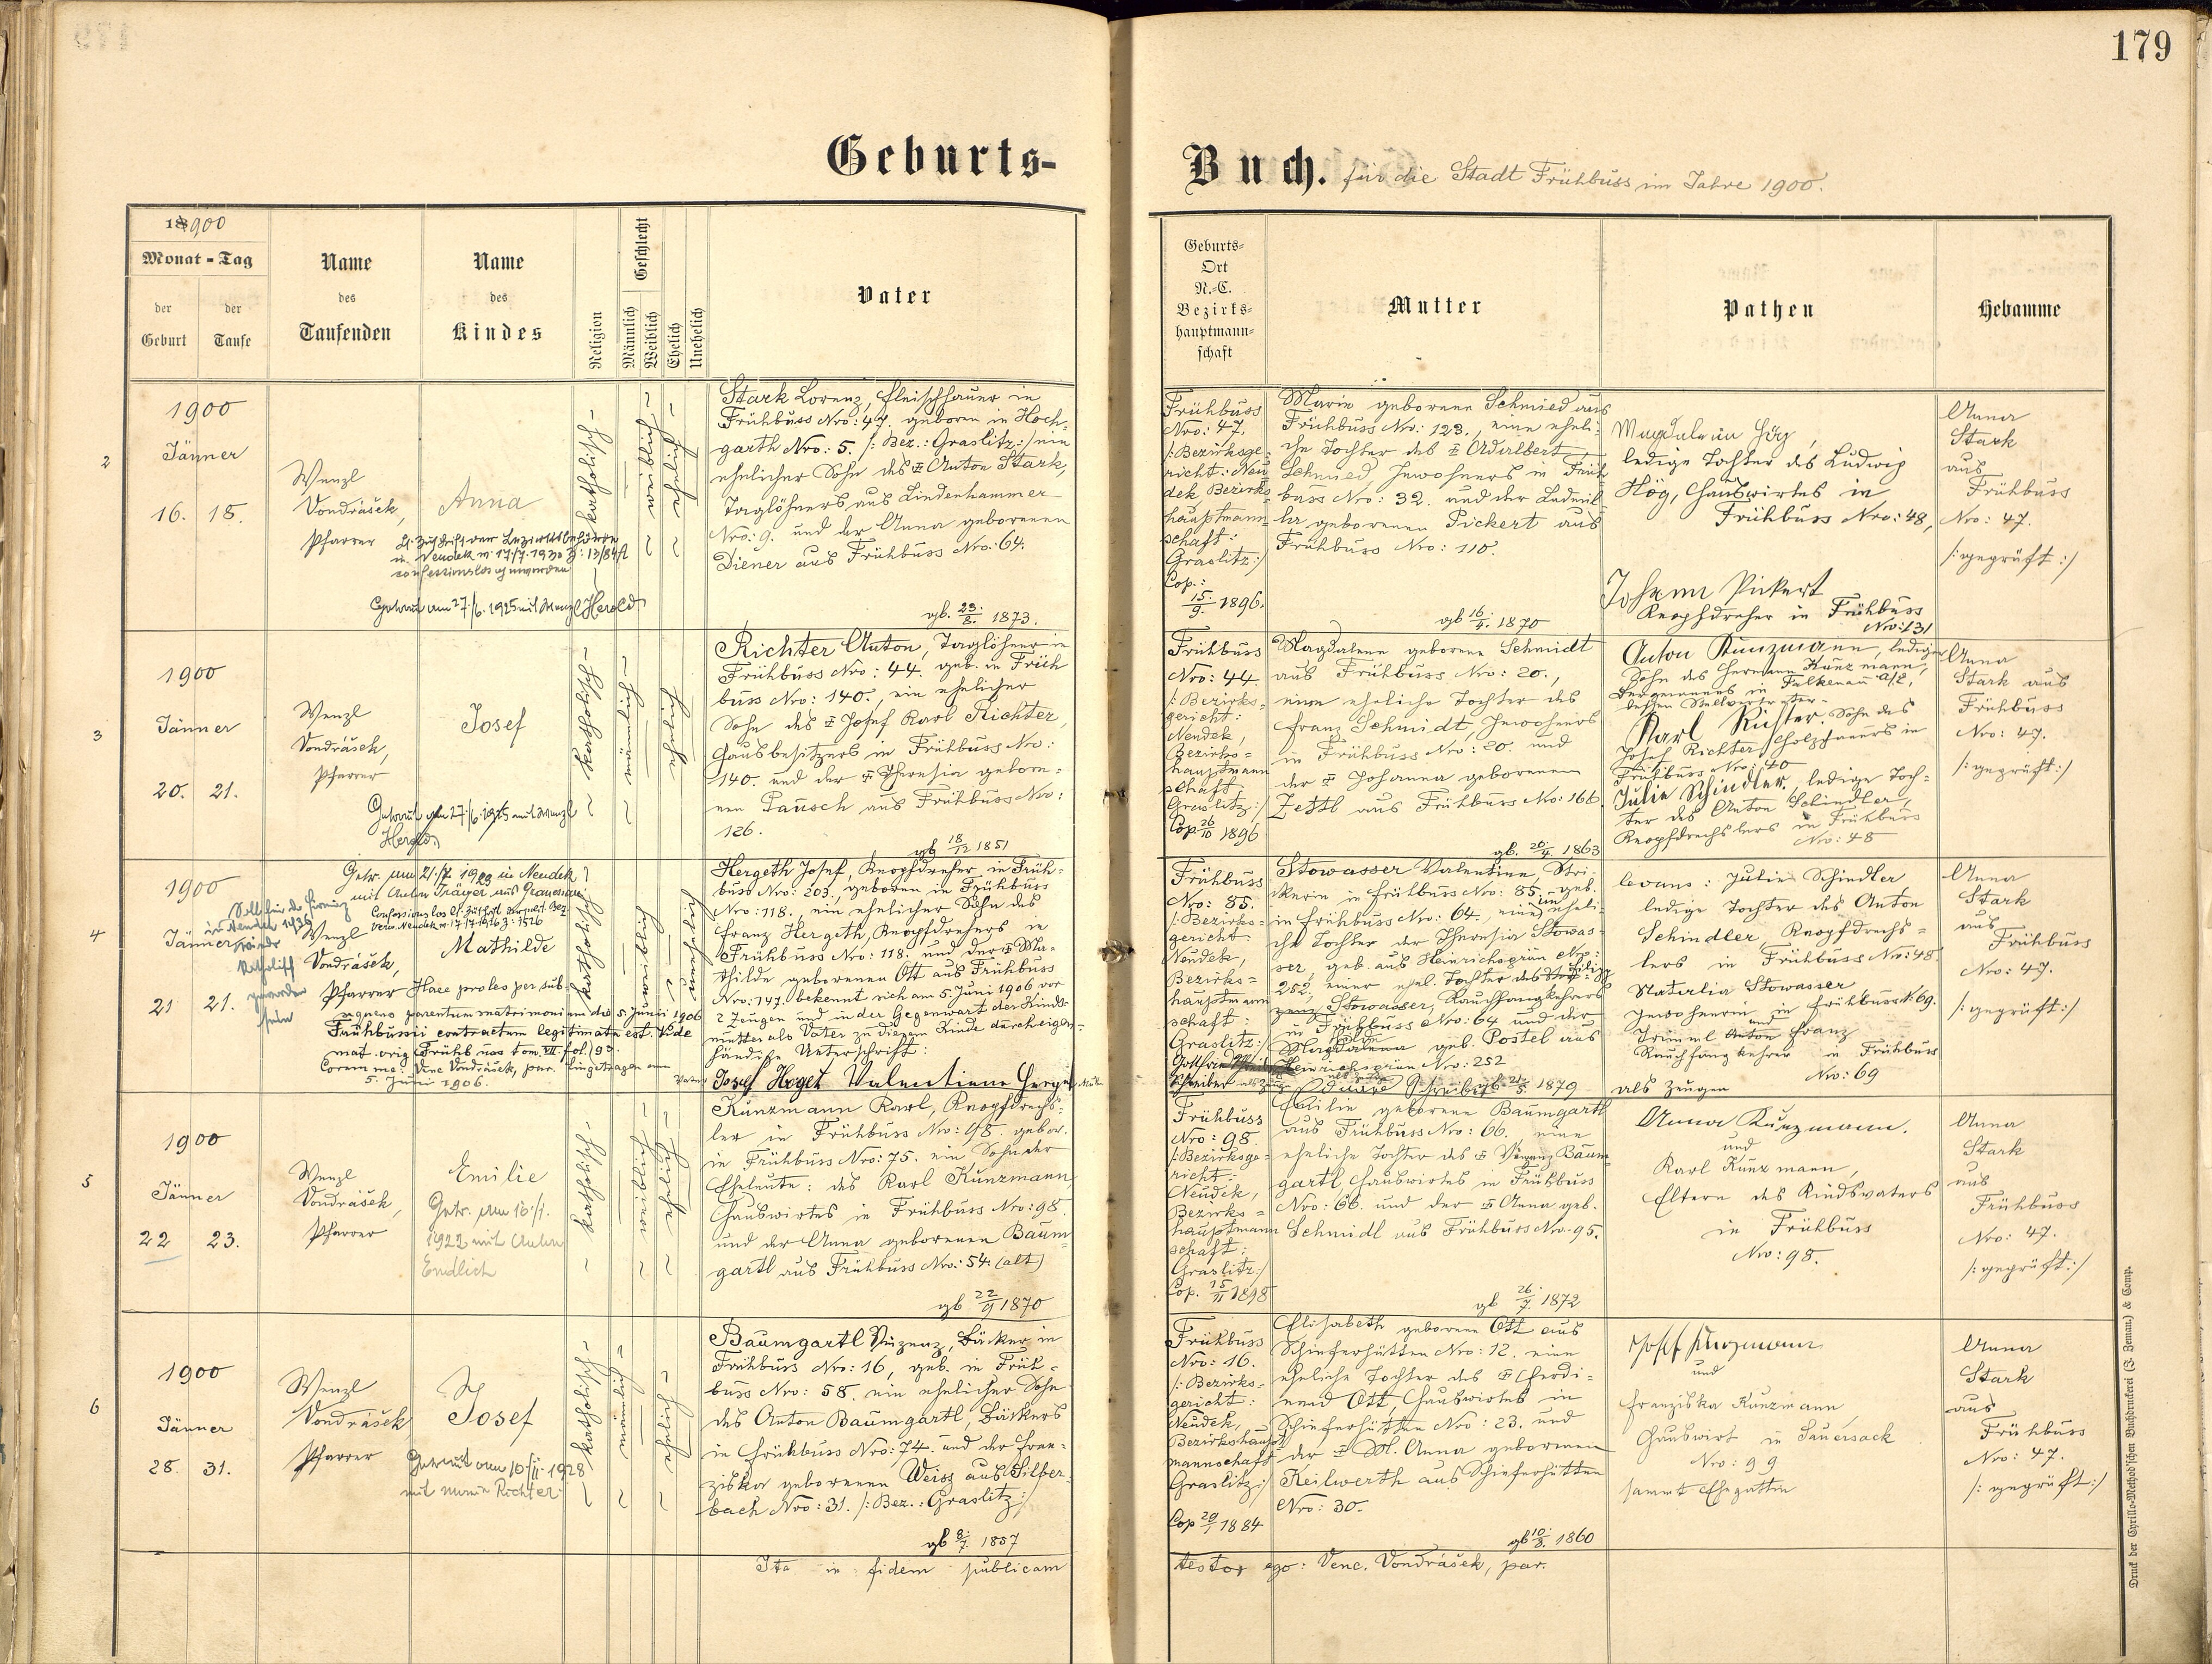 179
Geburts-
Buch. für die Stadt Frühbuss im Jahre 1900.
1900
Monat - Tag
der Geburt
der Taufe
Name des Taufenden
Name des Kindes
Religion
Geschlecht
Männlich
Weiblich
Ehelich
Unehelich
Vater
Geburts-
Ort
N.-C.
Bezirks-
hauptmann-
schaft
Mutter
Pathen
Hebamme
2
1900
Jänner
16. 18.
Wenzl
Vondrášek,
Pfarrer
Anna
confessionslos geworden
Getraut am 27./6. 1925 mit Wenzl Herold
katholisch
weiblich
ehelich
Stark Lorenz, Fleischhauer in
Frühbuss Nro: 47. geboren in Hoch-
garth Nro: 5. /: Bez.: Graslitz:/ ein
ehelicher Sohn des Anton Stark,
Taglöhners aus Lindenhammer
Nro: 9. und der Anna geborenen
Diener aus Frühbuss Nro: 64.
gb. 23./8. 1873.
Frühbuss
Nro: 47.
/: Bezirksge-
richt: Neu
dek Bezirks
hauptmann-
schaft:
Graslitz:/
Cop.:
15./9. 1896.
Marie geborene Schmied aus
Frühbuss Nro: 123., eine eheli-
che Tochter des Adalbert
Schmied Inwohners in Früh
buss Nro: 32. und der Ludmil-
la geborenen Pickert aus
Frühbuss Nro: 110.
gb 16./4. 1870
Magdalena Hög,
ledige Tochter des Ludwig
Hög, Hauswirtes in
Frühbuss Nro: 48,
Johann Pickert
Knopfdreher in Frühbuss
Nro: 131
Anna
Stark
aus
Frühbuss
Nro: 47.
/: geprüft :/
3
1900
Jänner
20. 21.
Wenzl
Vondrášek,
Pfarrer
Josef
Getraut am 27./6. 1925 mit Wenzl
Herold
katholisch
männlich
ehelich
Richter Anton, Taglöhner in
Frühbuss Nro: 44. geb. in Früh
buss Nro: 140., ein ehelicher
Sohn des Josef Karl Richter,
Hausbesitzers in Frühbuss Nro:
140. und der Theresia gebore-
nen Pausch aus Frühbuss Nro:
126.
gb 18/12 1851
Frühbuss
Nro: 44.
/: Bezirks-
gericht:
Neudek,
Bezirks-
hauptmann
schaft:
Graslitz:/
Cop 26/10 1896
Magdalena geborene Schmidt
aus Frühbuss Nro: 20.,
eine eheliche Tochter des
Franz Schmidt, Inwohners
in Frühbuss Nro: 20. und
der Johanna geborenen
Zettl aus Frühbuss Nro: 166.
gb. 20/4. 1863
Anton Kunzmann, lediger
Sohn des Hermann Kunzmann,
Bergmannes in Falkenau a/E,
dessen Stellvertreter
Karl Richter, Sohn des
Josef Richter, Holzhauers in
Frühbuss Nro: 40
Julie Schindler, ledige Toch-
ter des Anton Schindler,
Knopfdrechslers in Frühbuss
Nro: 48
Anna
Stark aus
Frühbuss
Nro: 47.
/: geprüft :/
4
1900
Jänner
21 21.
Wenzl
Vondrášek,
Pfarrer
Mathilde
Haec proles per sub-
sequens parentum matrimonium die 5. junii 1906
Frühbussii contractum legitimata est. Vide
mat. orig. Frühbuss tom. VII. fol.
Coram me: Venc Vondrášek, par.
5. Juni 1906.
katholisch
weiblich
unehelich
Hergeth Josef, Knopfdreher in Früh-
buss Nro: 203., geboren in Frühbuss
Nro: 118., ein ehelicher Sohn des
Franz Hergeth, Knopfdrehers in
Frühbuss Nro: 118. und der Ma-
thilde geborenen Ott aus Frühbuss
Nro: 147. bekennt sich am 5. Juni 1906 vor
2 Zeugen und in der Gegenwart der Kinds-
mutter als Vater zu diesem Kinde durch eigen-
händige Unterschrift:
Frühbuss
Nro: 85.
/: Bezirks-
gericht:
Neudek,
Bezirks-
hauptmann
schaft:
Graslitz:/
Stowasser Valentine, Stri-
kerin in Frühbuss Nro: 85. geb.
in Frühbuss Nro: 64., eine uneheli-
che Tochter der Theresia Stowas-
ser, geb. aus Heinrichsgrün Nro:
252, einer ehel. Tochter des
Stowasser, Rauchfangkehrers
in Frühbuss Nro: 64 und der
geb. Postel aus
Heinrichsgrün Nro: 252
1879
Levans: Julie Schindler
ledige Tochter des Anton
Schindler, Knopfdrechs-
lers in Frühbuss Nro: 48.
Natalia Stowasser
Inwohnerin in Frühbuss N: 69.
Franz
Rauchfangkehrer in Frühbuss
Nro: 69
als Zeugen
Anna
Stark
aus
Frühbuss
Nro: 47.
/: geprüft :/
5
1900
Jänner
22 23.
Wenzl
Vondrášek,
Pfarrer
Emilie
Getr. am 16./1.
1922 mit Anton
Endlich
katholisch
weiblich
ehelich
Kunzmann Karl, Knopfdrechs-
ler in Frühbuss Nro: 98. gebor.
in Frühbuss Nro: 75. ein Sohn der
Eheleute: des Karl Kunzmann
Hauswirtes in Frühbuss Nro: 98.
und der Anna geborenen Baum
gartl aus Frühbuss Nro: 54. (alt)
gb 22/9 1870
Frühbuss
Nro: 98.
/: Bezirksge-
richt:
Neudek,
Bezirks-
hauptmann
schaft:
Graslitz:/
Cop. 15/11 1898
Emilie geborene Baumgartl
aus Frühbuss Nro: 66. eine
eheliche Tochter des Vinzenz Baum
gartl Hauswirtes in Frühbuss
Nro: 66. und der Anna geb.
Schmidl aus Frühbuss Nro: 95.
gb 26/7. 1872
Anna Kunzmann.
und
Karl Kunzmann,
Eltern des Kindsvaters
in Frühbuss
Nro: 98.
Anna
Stark
aus
Frühbuss
Nro: 47.
/: geprüft :/
6
1900
Jänner
28. 31.
Wenzl
Vondrášek
Pfarrer
Josef
Getraut am 10./II. 1928
mit Marie Richter
katholisch
männlich
ehelich
Baumgartl Vinzenz, Bäcker in
Frühbuss Nro: 16, geb. in Früh-
buss Nro: 58. ein ehelicher Sohn
des Anton Baumgartl, Bäckers
in Frühbuss Nro: 74. und der Fran-
ziska geborenen Weiss aus Silber-
bach Nro: 31. /: Bez.: Graslitz:/
gb 8/7. 1857
Frühbuss
Nro: 16.
/: Bezirks-
gericht:
Neudek,
Bezirkshaupt
mannschaft
Graslitz:/
Cop 29/1 1884
Elisabeth geborene Ott aus
Schieferhütten Nro: 12. eine
eheliche Tochter des Ferdi-
nand Ott, Hauswirtes in
Schieferhütten Nro: 23. und
der M. Anna geborenen
Keilwerth aus Schieferhütten
Nro: 30.
gb 10./8. 1860
Josef Kunzmann
und
Franziska Kunzmann
Hauswirt in Sauersack
Nro: 99
sammt Ehegattin
Anna
Stark
aus
Frühbuss
Nro: 47.
/: geprüft :/
Ita in fidem publicam
testor ego: Venc. Vondrášek, par.
Druck der Cyrillo-Method'schen Buchdruckerei (J. Zeman.) & Comp.